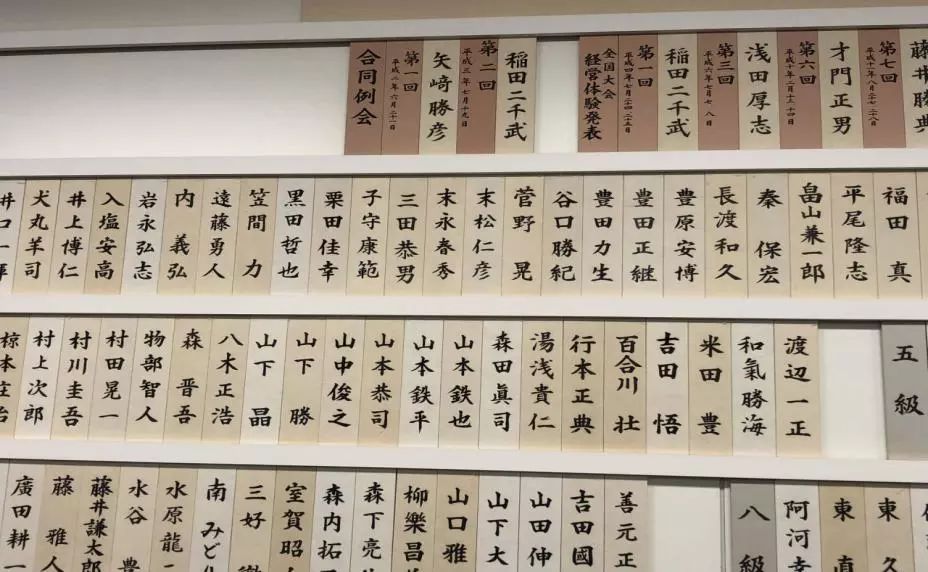 第七回
才門正男
第六回
平成十年二月十三、十四日
浅田厚志
第三回
平成六年七月七、八日
稲田二千武
第一回
平成四年七月二十四、二十五日
全国大会
経営体験発表
稲田二千武
第二回
平成三年七月十九日
矢﨑勝彦
第一回
平成二年六月二十一日
合同例会
福田真
平尾隆志
畠山兼一郎
秦保宏
長渡和久
豊原安博
豊田正継
豊田力生
谷口勝紀
菅野晃
末松仁彦
末永春秀
三田恭男
子守康範
栗田佳幸
黒田哲也
笠間力
遠藤勇人
内義弘
岩永弘志
入塩安高
井上博仁
犬丸羊司
五級
渡辺一正
和氣勝海
米田豊
吉田悟
百合川壮
行本正典
湯浅貴仁
森田眞司
山本鉄也
山本鉄平
山本恭司
山中俊之
山下勝
山下晶
八木正浩
森晋吾
物部智人
村田晃一
村川圭吾
村上次郎
椋本庄治
東久
東直
阿河幸
八級
善元正
吉田國
山田伸
山下大
山口雅
柳樂昌
森下亮
森内拓
室賀昭
三好
南みど
水原龍一
水谷豊
藤井謙太郎
藤雅人
廣田耕一